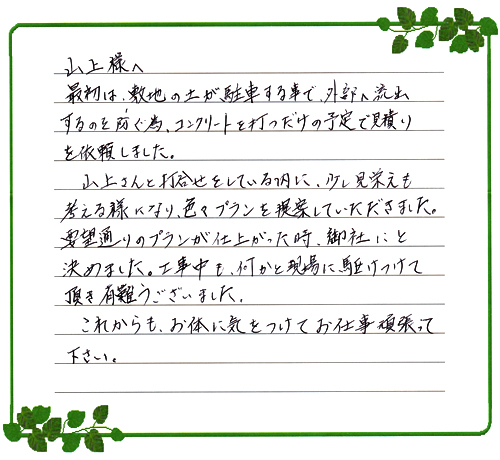 山上様へ
最初は、敷地の土が駐車する事で、外部へ流出
するのを防ぐ為、コンクリートを打つだけの予定で見積り
を依頼しました。
山上さんと打合せをしている内に、少し見栄えも
考える様になり、色々プランを提案していただきました。
要望通りのプランが仕上がった時、御社にと
決めました。工事中も、何かと現場に駆けつけて
頂き有難うございました。
これからも、お体に気をつけてお仕事頑張って
下さい。